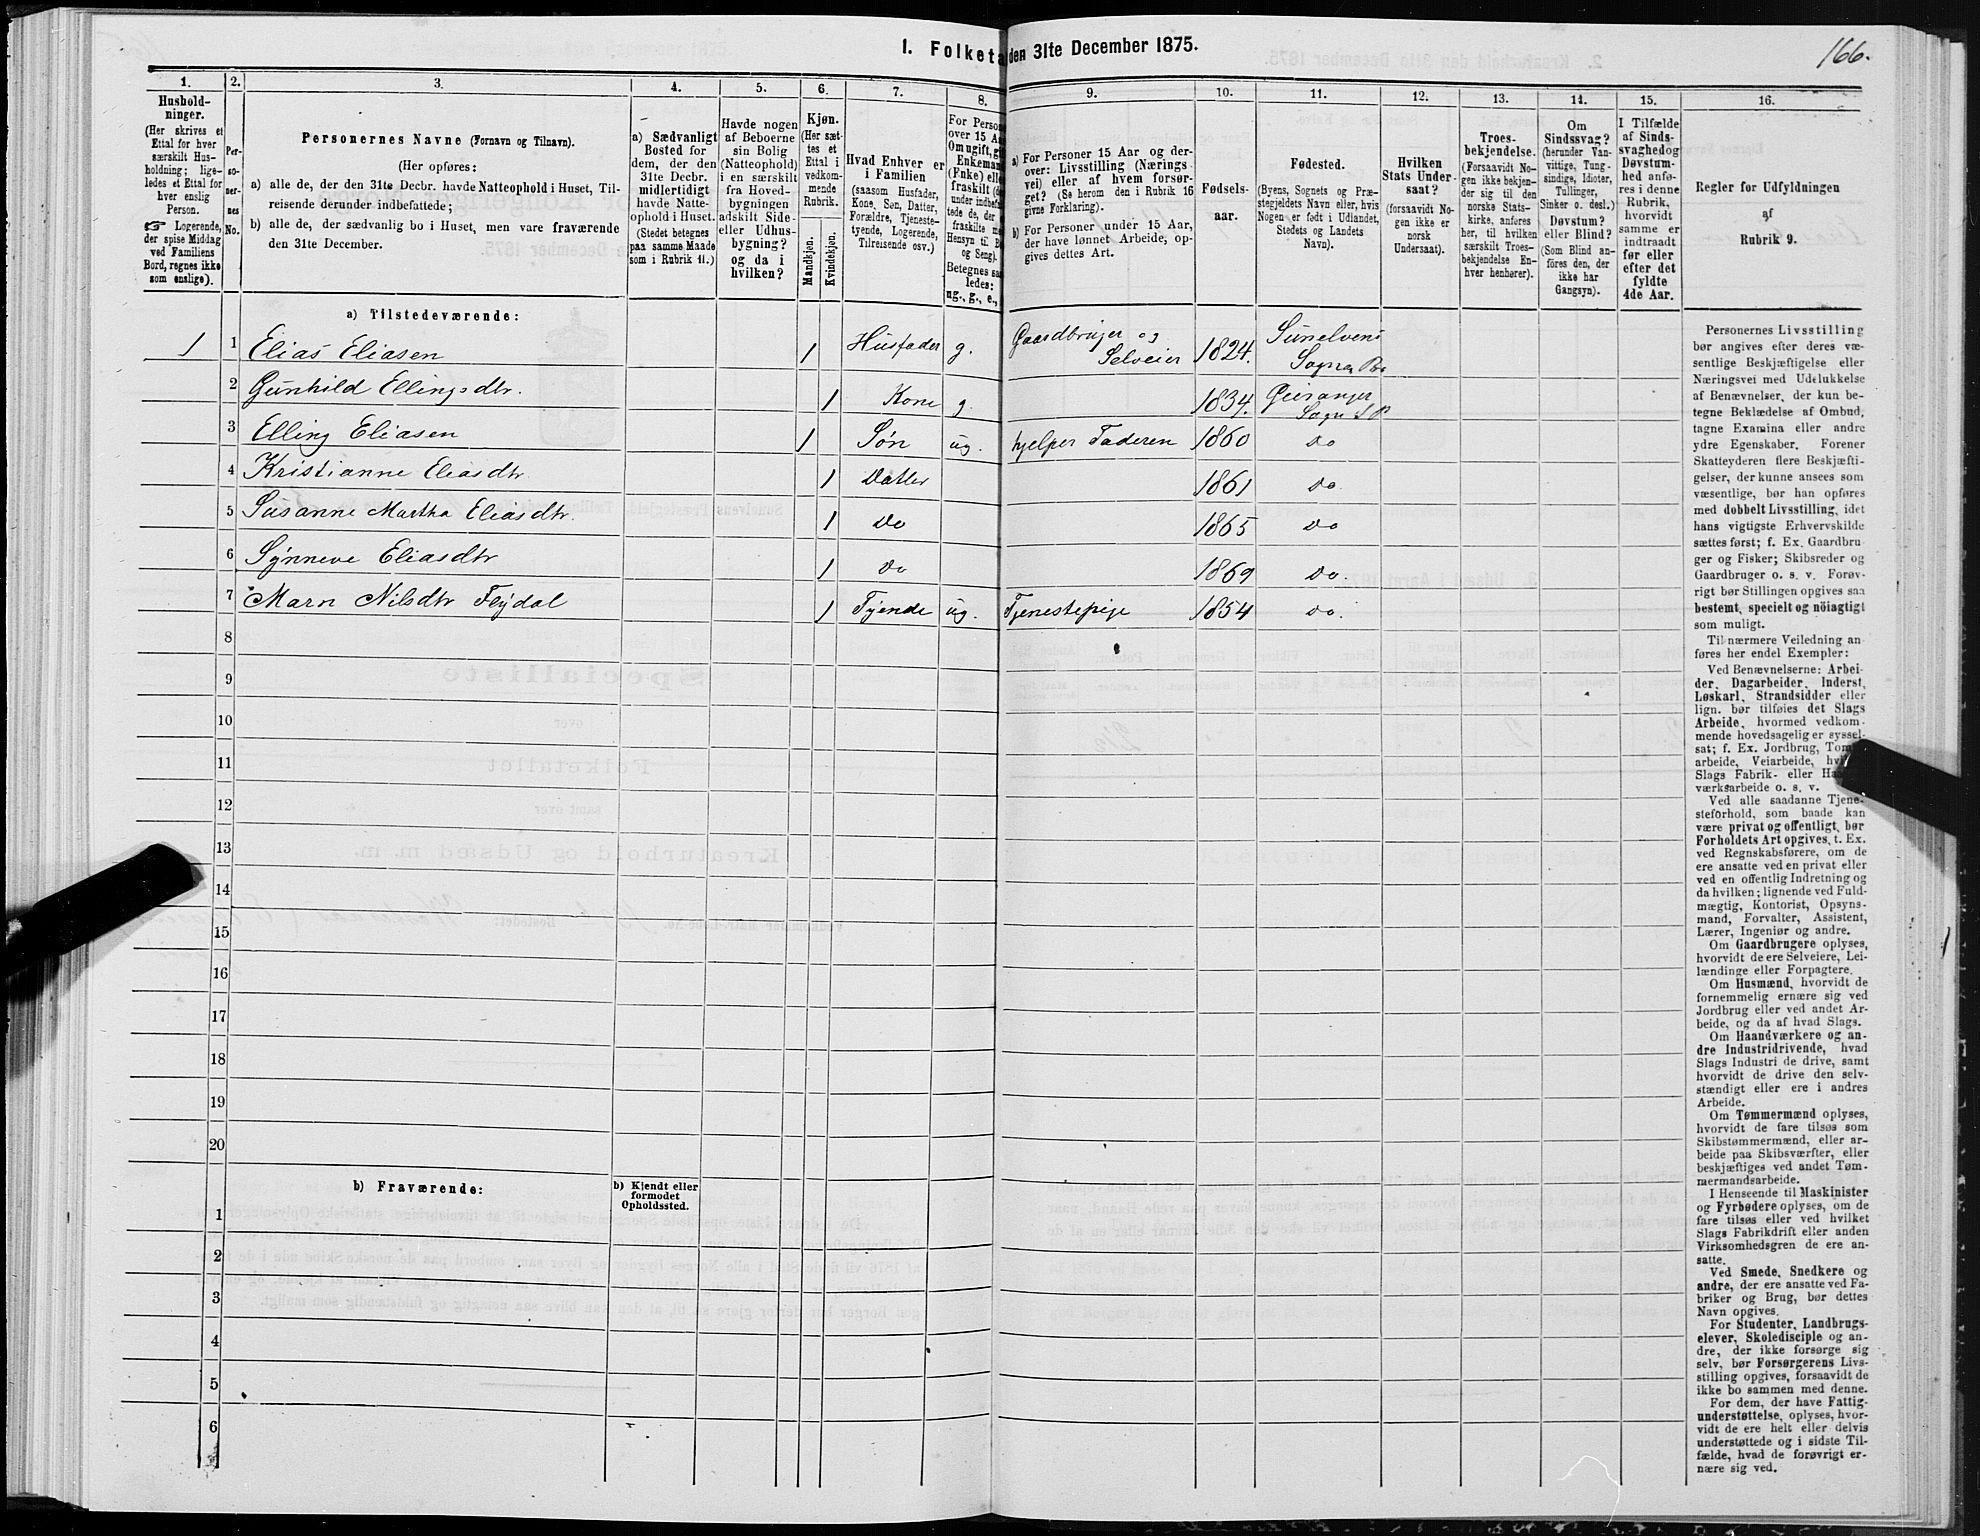 I. Folketa den 31te December 1875.
166.
1. 2. 3. 4. 5. 6. 7. 8. 9. 10. 11. 12. 13. 14. 15. 16.
Hushold-
ninger.
(Her skrives et
Ettal for hver
særskilt Hus-
holdning; lige-
ledes et Ettal for
hver enslig
Person.
☞ Logerende,
der spise Middag
ved Familiens
Bord, regnes ikke
som enslige).
Per-
so-
ner-
nes
No.
Personernes Navne (Fornavn og Tilnavn).
(Her opføres:
a) alle de, der den 31te Decbr. havde Natteophold i Huset, Til-
reisende derunder indbefattede;
b) alle de, der sædvanlig bo i Huset, men vare fraværende
den 31te December.
a) Sædvanligt
Bosted for
dem, der den
31te Decbr.
midlertidigt
havde Natte-
ophold i Huset.
(Stedet betegnes
paa samme Maade
som i Rubrik 11.)
Havde nogen
af Beboerne
sin Bolig
(Natteophold)
i en særskilt
fra Hoved-
bygningen
adskilt Side-
eller Udhus-
bygning?
og da i
hvilken?
Kjøn.
(Her sæt-
tes et
Ettal i
vedkom-
mende
Rubrik.
Mandkjøn.
Kvindekjøn.
Hvad Enhver er
i Familien
(saasom Husfader,
Kone, Søn, Datter,
Forældre, Tjeneste-
tyende, Logerende,
Tilreisende osv.)
For Person
over 15 Aa
Om ugift, gi
Enkemand
(Enke) elle
fraskilt (de
under indbef
tede de, der
fraskilte me
Hensyn til B
og Seng).
Betegnes saa
ledes:
ug., g., e.,
a) For Personer 15 Aar og der-
over: Livsstilling (Nærings-
vei) eller af hvem forsør-
get? (Se herom den i Rubrik 16
givne Forklaring).
b) For Personer under 15 Aar,
der have lønnet Arbeide, op-
gives dettes Art.
Fødsels-
aar.
Fødested.
(Byens, Sognets og Præ-
stegjeldets Navn eller, hvis
Nogen er født i Udlandet,
Stedets og Landets
Navn).
Hvilken
Stats Under-
saat?
(forsaavidt No-
gen ikke er
norsk
Undersaat).
Troes-
bekjendelse.
(Forsaavidt No-
gen ikke bekjen-
der sig til den
norske Stats-
kirke, anføres
her, til hvilken
særskilt Troes-
bekjendelse En-
hver henhører).
Om
Sindssvag?
(herunder Van-
vittige, Tung-
sindige, Idioter,
Tullinger,
Sinker o. desl.)
Døvstum?
eller Blind?
(Som Blind an-
føres den, der
ikke har
Gangsyn).
I Tilfælde
af Sinds-
svaghed og
Døvstum-
hed anfø-
res i denne
Rubrik,
hvorvidt
samme er
indtraadt
før eller
efter det
fyldte
4de Aar.
Regler for Udfyldningen
af
Rubrik 9.
a) Tilstedeværende:
1 1 Elias Eliasen 1 Husfader g. Gaardbruger og Selveier 1824. Sunelvens Sogn
2 Gunhild Ellingsdtr. 1 Kone g. 1834. Geiranger Sogn S P
3 Elling Eliasen 1 Søn ug. hjelper Faderen 1860 do
4 Kristianne Eliasdtr. 1 Datter 1861 do.
5 Susanne Martha Eliasdtr. 1 Do 1865 do
6 Synneve Eliasdtr 1 do 1869 do.
7 Marn Nilsdtr Flydal 1 Tyende ug. Tjenestepige 1854 do.
8
9
10
11
12
13
14
15
16
17
18
19
20
b) Fraværende:
b) Kjendt eller
formodet
Opholdssted.
1
2
3
4
5
6
Personernes Livsstilling
bør angives efter deres væ-
sentlige Beskjæftigelse eller
Næringsvei med Udelukkelse
af Benævnelser, der kun be-
tegne Beklædelse af Ombud,
tagne Examina eller andre
ydre Egenskaber. Forener
Skatteyderen flere Beskjæfti-
gelser, der kunne ansees som
væsentlige, bør han opføres
med dobbelt Livsstilling, idet
hans vigtigste Erhvervskilde
sættes først; f. Ex. Gaardbru-
ger og Fisker; Skibsreder og
Gaardbruger o. s. v. Forøv-
rigt bør Stillingen opgives saa
bestemt, specielt og nöiagtigt
som muligt.
Til nærmere Veiledning an-
føres her endel Exempler:
Ved Benævnelserne: Arbei-
der, Dagarbeider, Inderst,
Løskarl, Strandsidder eller
lign. bør tilføies det Slags
Arbeide, hvormed vedkom-
mende hovedsagelig er syssel-
sat; f. Ex. Jordbrug, Tom
arbeide, Veiarbeide, hv
Slags Fabrik- eller Ha
værksarbeide o. s. v.
Ved alle saadanne Tjene-
steforhold, som baade kan
være privat og offentligt, bør
Forholdets Art opgives, t. Ex.
ved Regnskabsførere, om de
ere ansatte ved en privat eller
ved en offentlig Indretning og
da hvilken; lignende ved Fuld-
mægtig, Kontorist, Opsyns-
mand, Forvalter, Assistent,
Lærer, Ingeniør og andre.
Om Gaardbrugere oplyses,
hvorvidt de ere Selveiere, Lei-
lændinge eller Forpagtere.
Om Husmænd, hvorvidt de
fornemmelig ernære sig ved
Jordbrug eller ved andet Ar-
beide, og da af hvad Slags.
Om Haandværkere og an-
dre Industridrivende, hvad
Slags Industri de drive, samt
hvorvidt de drive den selv-
stændigt eller ere i andres
Arbeide.
Om Tømmermænd oplyses,
hvorvidt de fare tilsøs som
Skibstømmermænd, eller ar-
beide paa Skibsværfter, eller
beskjæftiges ved andet Tøm-
mermandsarbeide.
I Henseende til Maskinister
og Fyrbødere oplyses, om de
fare tilsøs eller ved hvilket
Slags Fabrikdrift eller anden
Virksomhedsgren de ere an-
satte.
Ved Smede, Snedkere og
andre, der ere ansatte ved Fa-
briker og Brug, bør dettes
Navn opgives.
For Studenter, Landbrugs-
elever, Skoledisciple og an-
dre, der ikke forsørge sig
selv, bør Forsørgerens Livs-
stilling opgives, forsaavidt de
ikke bo sammen med denne.
For dem, der have Fattig-
understøttelse, oplyses, hvor-
vidt de ere helt eller delvis
understøttede og i sidste Til-
fælde, hvad de forøvrigt er-
nære sig ved.